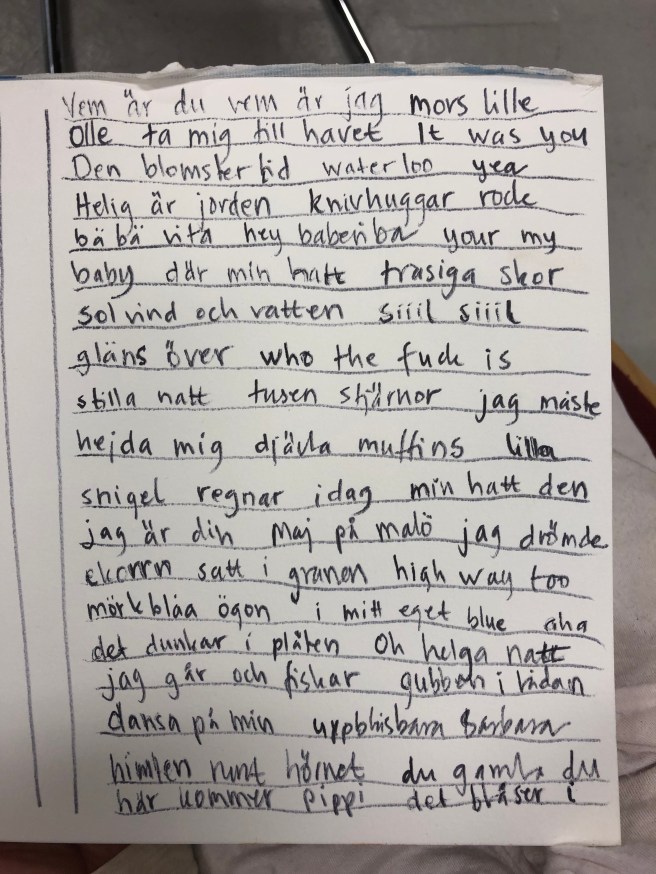 Vem är du vem är jag mors lille
Olle ta mig till havet It was you
Den blomster tid waterloo yea
Helig är jorden knivhuggar rock
bä bä vita hey baberiba your my
baby där min hatt trasiga skor
sol vind och vatten siiil siiil
gläns över who the fuck is
stilla natt tusen stjärnor jag måste
hejda mig djävla muffins lilla
snigel regnar idag min hatt den
jag är din Maj på malö jag drömde
ekorrn satt i granen high way too
mörkblåa ögon i mitt eget blue aha
det dunkar i plåten Oh helga natt
jag går och fiskar gubben i lådan
dansa på min uppblåsbara Barbara
himlen runt hörnet du gamla du
här kommer pippi det blåser i